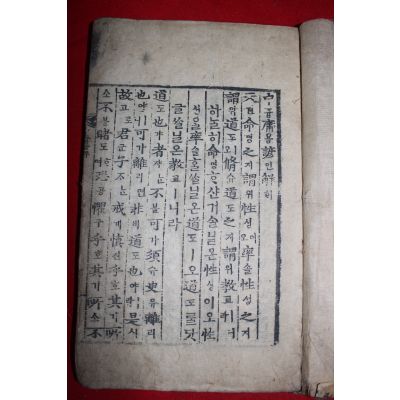 中듕庸용諺언解ᄒᆡ
天텬命명之지謂위性셩이오率솔性셩之지
謂위道도ㅣ오脩슈道도之지謂위敎교ㅣ니라
하ᄂᆞᆯ히命명ᄒᆞ샨거슬닐온性셩이오性
셩을率솔홀쓸닐온道도ㅣ오道도를닷
글쓸닐온敎교ㅣ니라
道도也야者쟈ᄂᆞᆫ不블可가須슈臾유離리
也야ㅣ니可가離리면非비道도也야ㅣ라是시
故고로君군子ᄌᆞᄂᆞᆫ戒계愼신乎호其기所
소不블睹도ᄒᆞ며恐공懼구乎호其기所소不